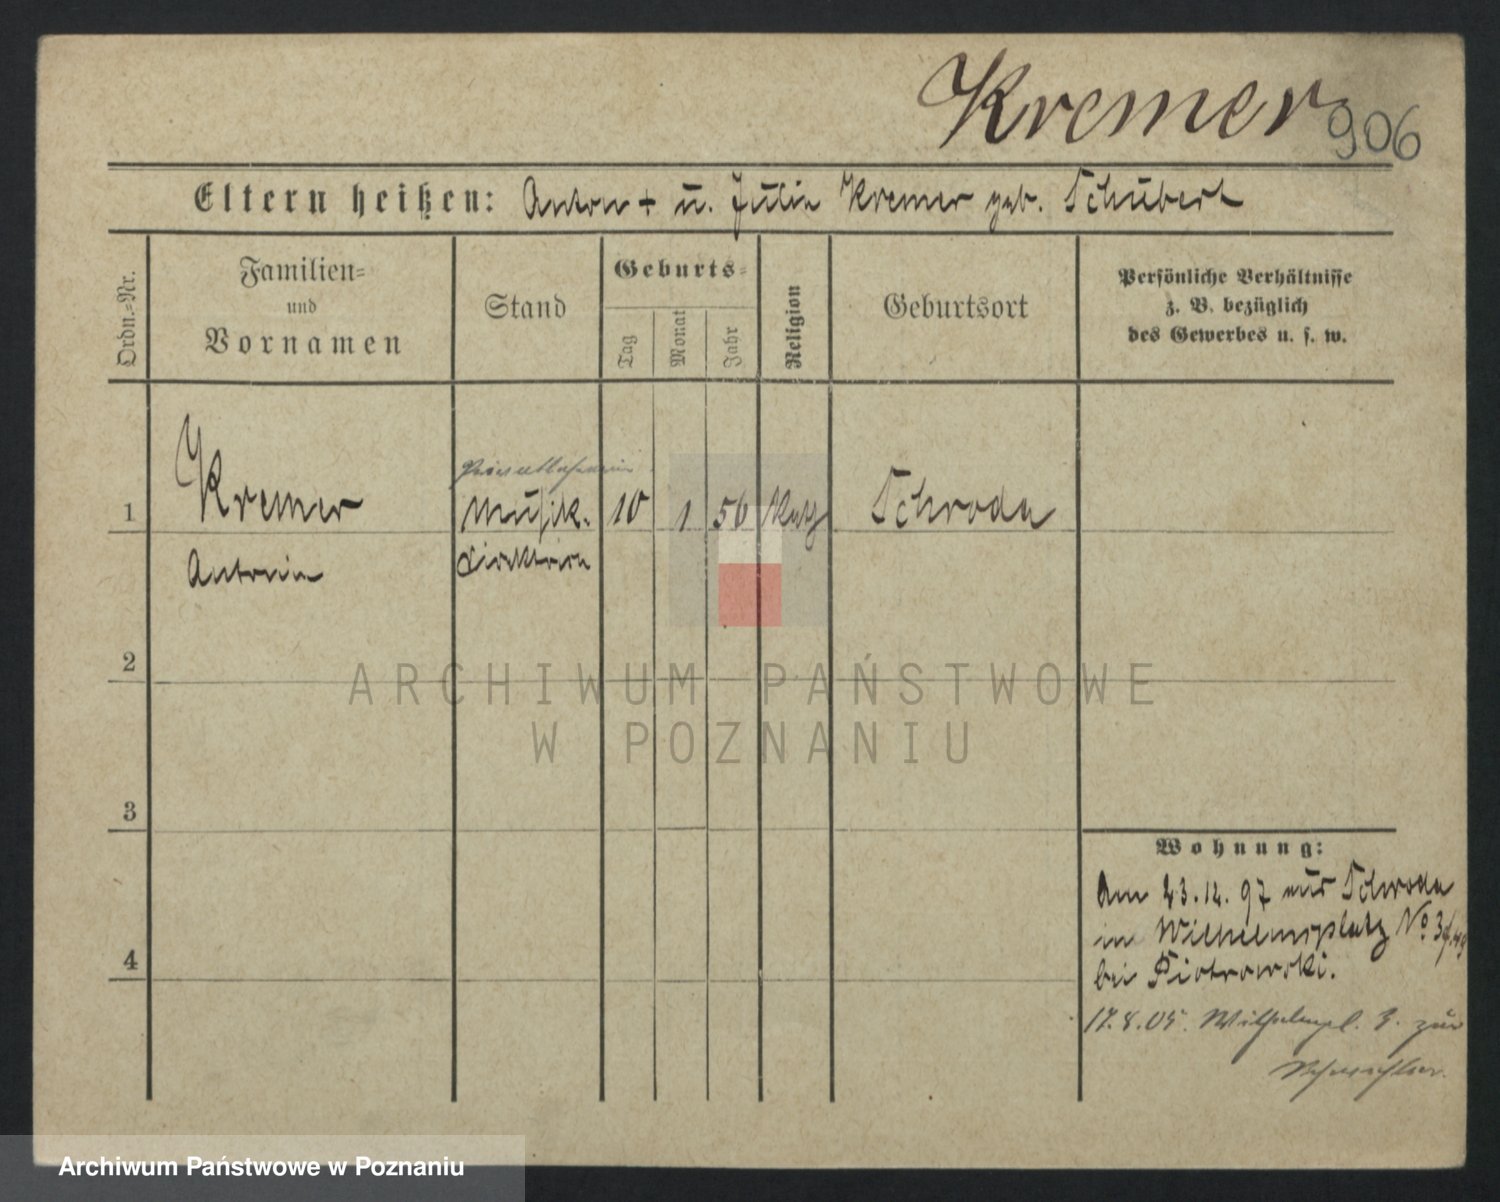 Kremer
906
Eltern heißen: Anton + u. Julia Kremer geb. Schubert
Ordn.-Nr.
Familien-
und
Vornamen
Stand
Geburts-
Tag
Monat
Jahr
Religion
Geburtsort
Persönliche Verhältnisse
z. B. bezüglich
des Gewerbes u. s. w.
1
Kremer
Musik.
10
1
56
Kath
Schroda
Antonia
2
ARCHIWUM PAŃSTWOWE
W POZNANIU
3
4
Wohnung:
Am 23.12.97 aus Schroda
in Wilhelmsplatz No 3
bei Piotrowski.
17.8.05. Wilhelmpl. 3. zur
Archiwum Państwowe w Poznaniu